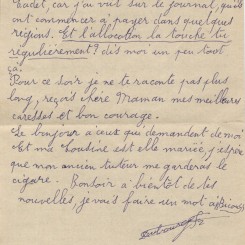 Cadet, car j'ai vut sur le journal, qu'ils
ont commencer à payer dans quelques
régions. Et l'allocation la touche tu
régulièrement? dis moi un peu tout
ça.
Pour ce soir je ne te raconte pas plus
long, reçois chère Maman mes meilleurs
caresses et bon courage.
Le bonjour a ceux qui demandent de moi
Et ma cousine est elle mariée, j'espère
que mon ancien tuteur me garderas le
cigare. Bonsoir à bientôt de tes
nouvelles, je vais faire un mot a